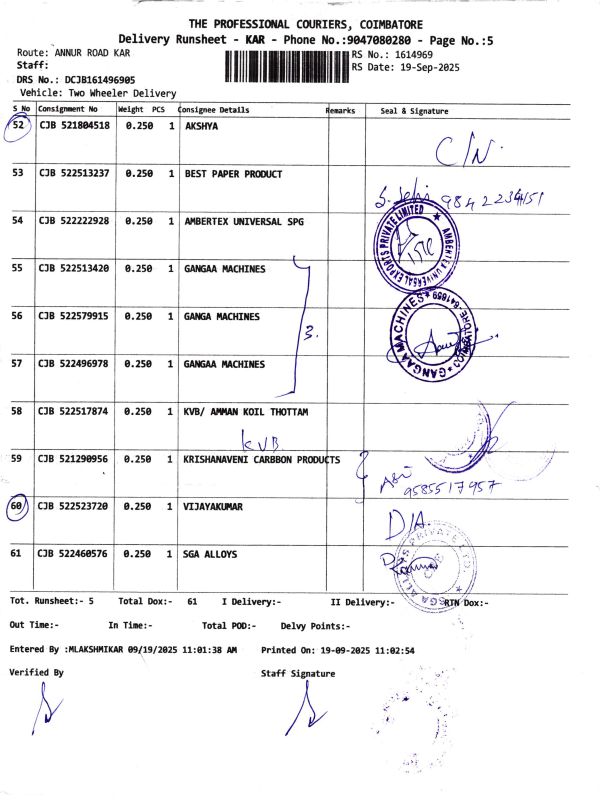 THE PROFESSIONAL COURIERS, COIMBATORE
Delivery Runsheet - KAR - Phone No.:9047080280 - Page No.:5
Route: ANNUR ROAD KAR
RS No.: 1614969
Staff:
RS Date: 19-Sep-2025
DRS No.: DCJB161496905
Vehicle: Two Wheeler Delivery
S No Consignment No Weight PCS Consignee Details Remarks Seal & Signature
52 CJB 521804518 0.250 1 AKSHYA
C/N
53 CJB 522513237 0.250 1 BEST PAPER PRODUCT
9842234151
54 CJB 522222928 0.250 1 AMBERTEX UNIVERSAL SPG
AMBERTEX UNIVERSAL EXPORTS PRIVATE LIMITED
55 CJB 522513420 0.250 1 GANGAA MACHINES
56 CJB 522579915 0.250 1 GANGA MACHINES
3.
GANGAA MACHINES COIMBATORE-641659
57 CJB 522496978 0.250 1 GANGAA MACHINES
58 CJB 522517874 0.250 1 KVB/ AMMAN KOIL THOTTAM
KVB
59 CJB 521290956 0.250 1 KRISHNAVENI CARBBON PRODUCTS
9585517957
60 CJB 522523720 0.250 1 VIJAYAKUMAR
D/A.
61 CJB 522460576 0.250 1 SGA ALLOYS
SGA ALLOYS PRIVATE LTD.
Tot. Runsheet:- 5 Total Dox:- 61 I Delivery:- II Delivery:- RTN Dox:-
Out Time:- In Time:- Total POD:- Delvy Points:-
Entered By :MLAKSHMIKAR 09/19/2025 11:01:38 AM Printed On: 19-09-2025 11:02:54
Verified By Staff Signature